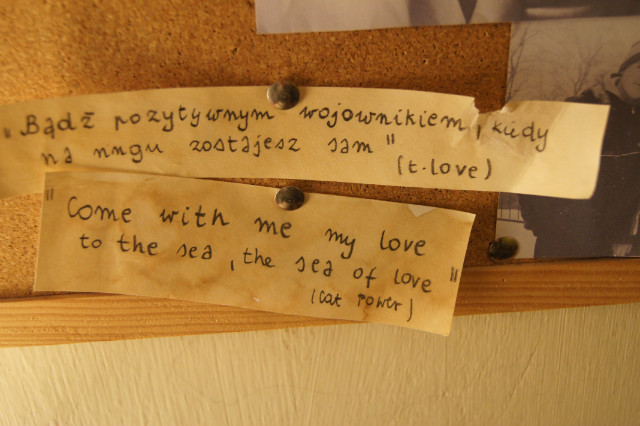 "Bądź pozytywnym wojownikiem, kiedy
na ringu zostajesz sam"
(t.love)
"Come with me my love
to the sea, the sea of love"
(Cat Power)